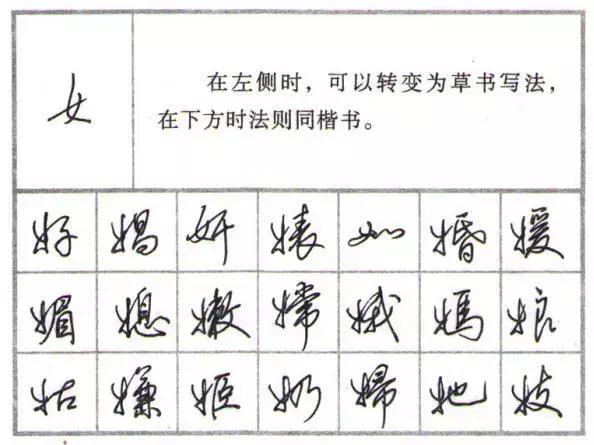 女
在左侧时，可以转变为草书写法，
在下方时法则同楷书。
好 娼 妍 婊 如 婚 媛
媚 媳 嫩 嫦 娥 媽 娘
姑 嫌 姬 奶 婦 她 妓